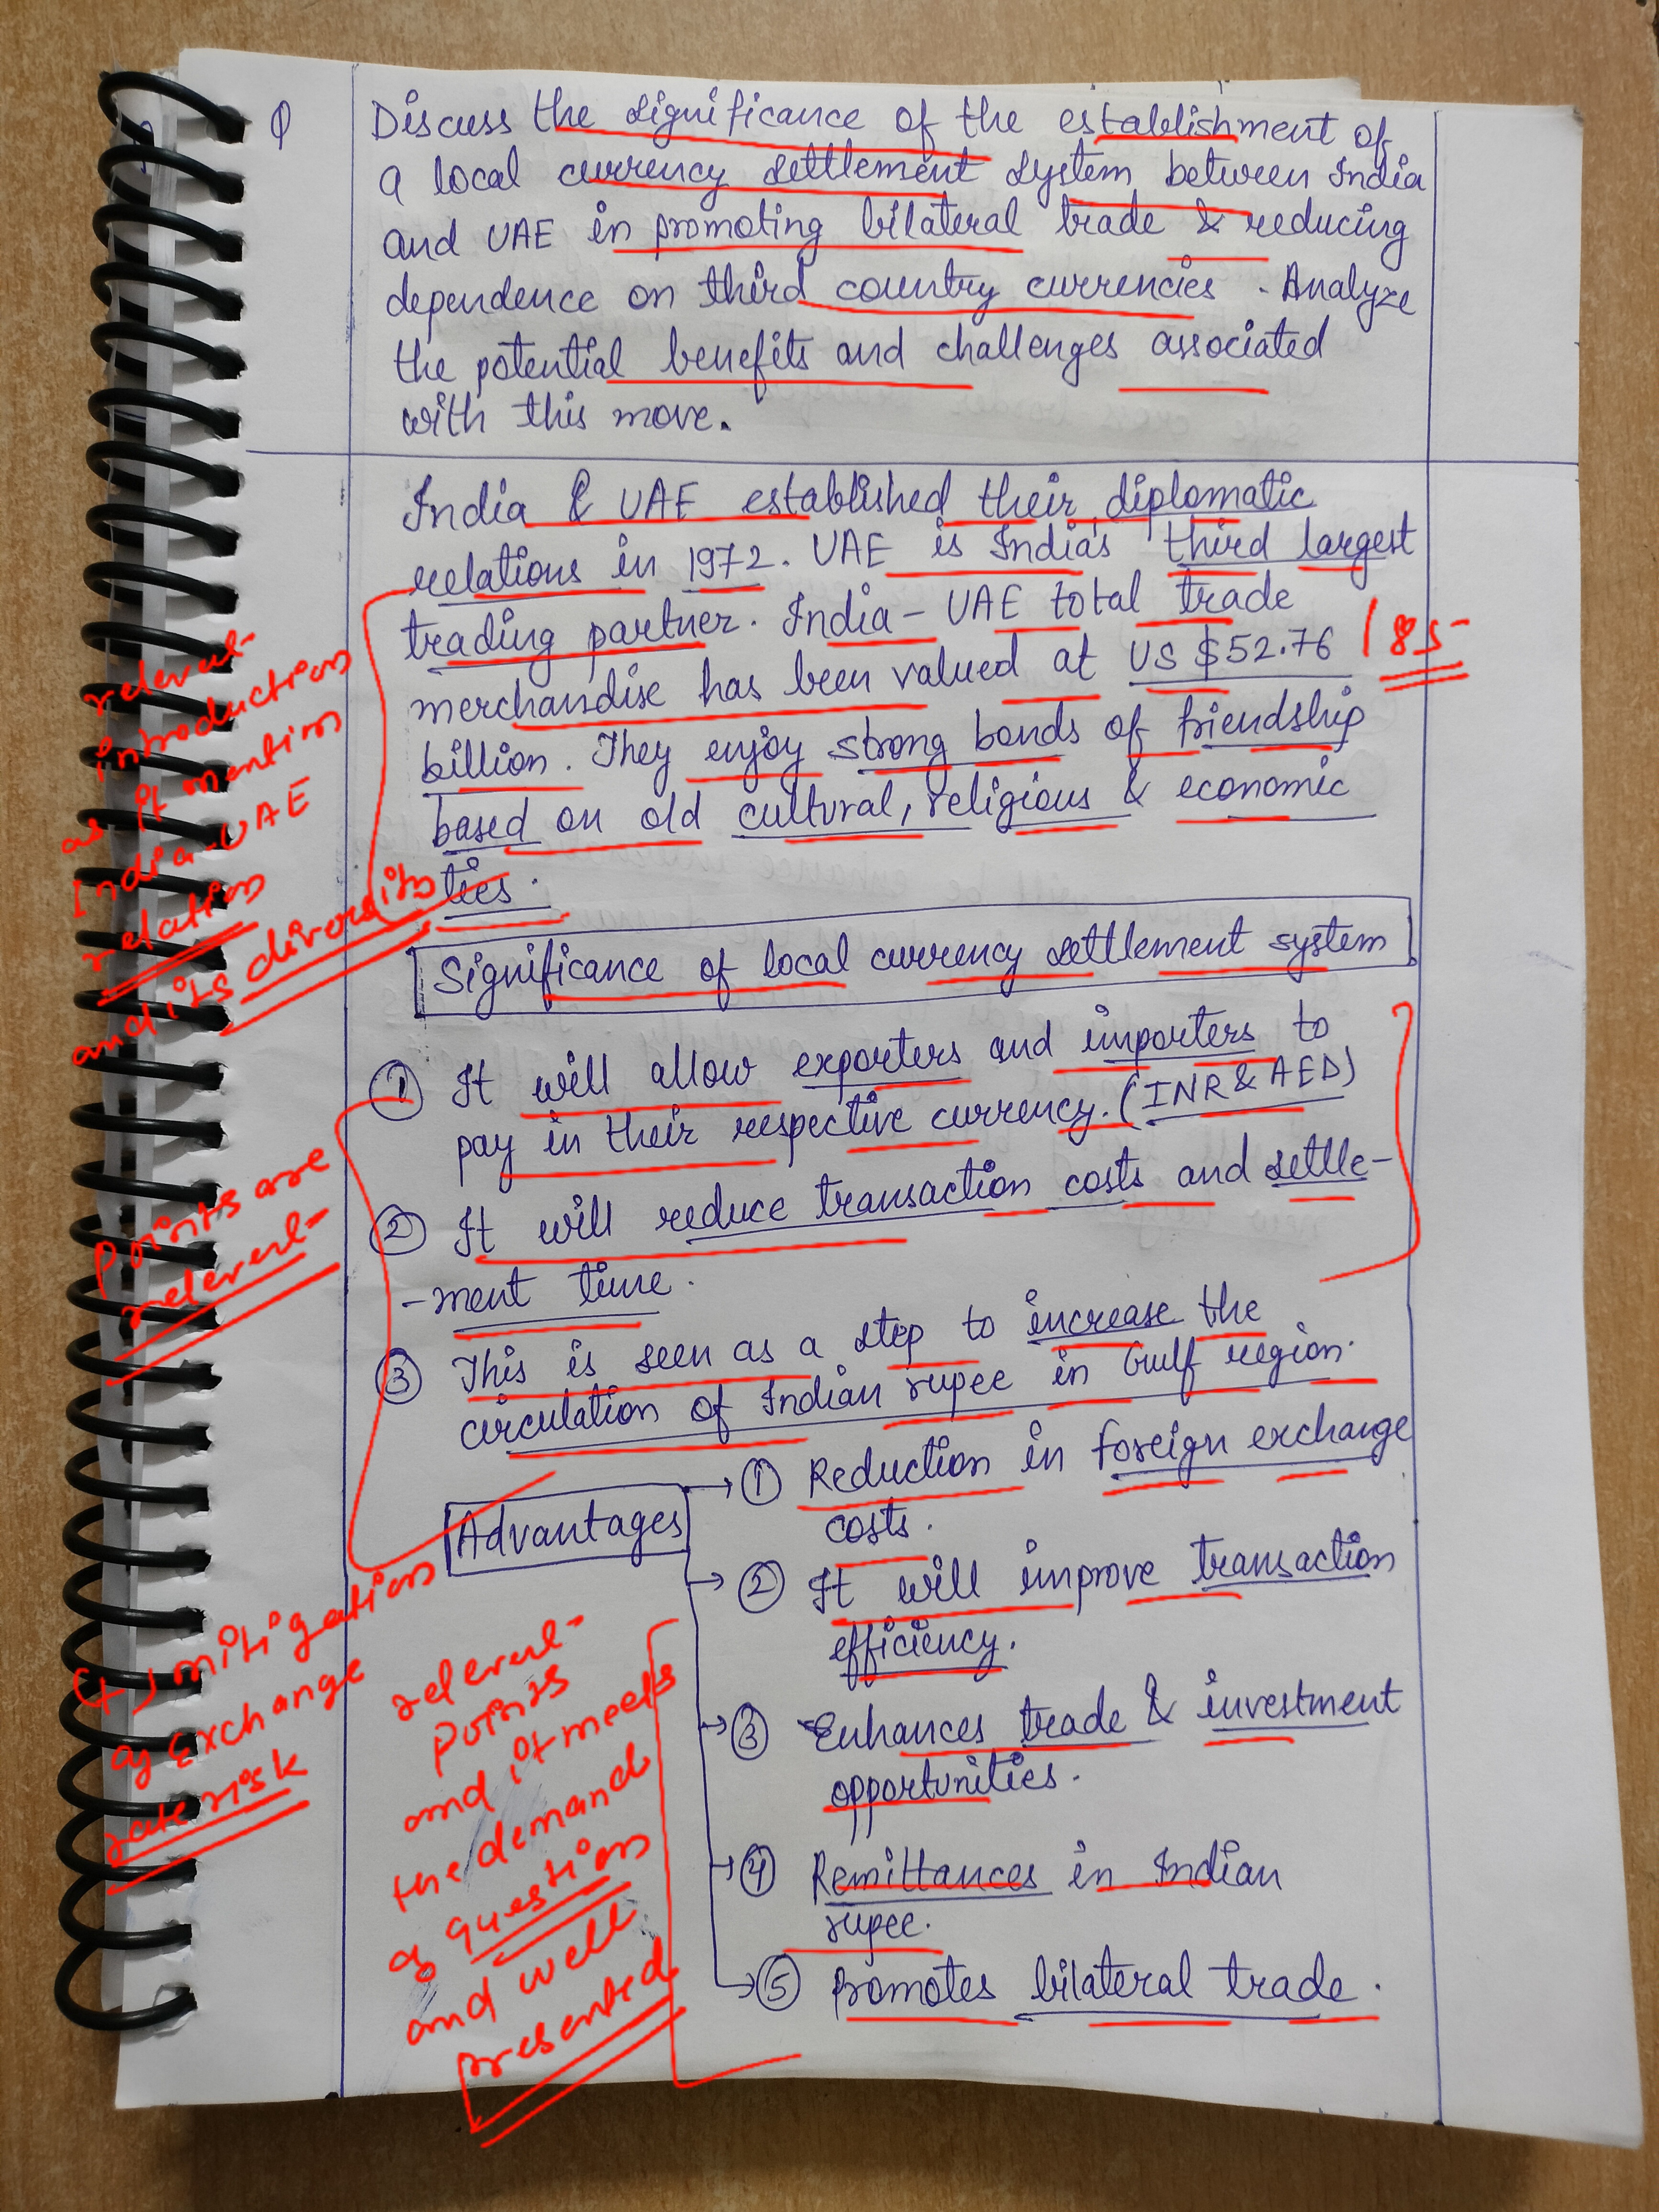 Q Discuss the significance of the establishment of
a local currency settlement system between India
and UAE in promoting bilateral trade & reducing
dependence on third country currencies. Analyze
the potential benefits and challenges associated
with this move.
India & UAE established their diplomatic
relations in 1972. UAE is India's third largest
trading partner. India - UAE total trade
merchandise has been valued at US $52.76
billion. They enjoy strong bonds of friendship
based on old cultural, religious & economic
ties.
relevent
introduction
as it mention
India-UAE
relation
and its diversity
Significance of local currency settlement system
① It will allow exporters and importers to
pay in their respective currency. (INR & AED)
② It will reduce transaction costs and settle-
-ment time.
③ This is seen as a step to increase the
circulation of Indian rupee in Gulf region.
Points are
relevent
(+) mitigation
of exchange
rate risk
Advantages
① Reduction in foreign exchange
costs.
② It will improve transaction
efficiency.
③ Enhances trade & investment
opportunities.
④ Remittances in Indian
rupee.
⑤ Promotes bilateral trade.
relevent
points
and it meets
the demand
of question
and well
presented